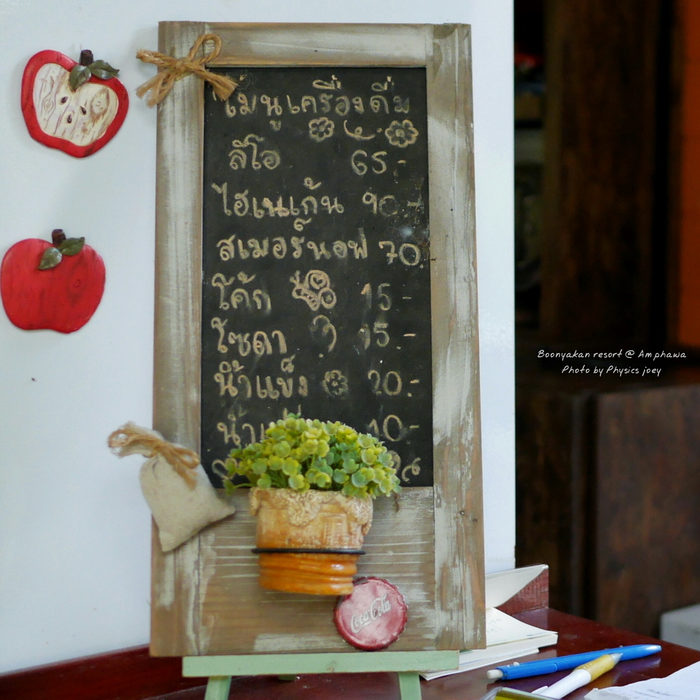 เมนูเครื่องดื่ม
ลีโอ 65.-
ไฮเนเก้น 90.-
สเมอร์นอฟ 70.
โค้ก 15.-
โซดา 15.-
น้ำแข็ง 20.-
Coca-Cola
Boonyakan resort @ Amphawa
Photo by Physics joey